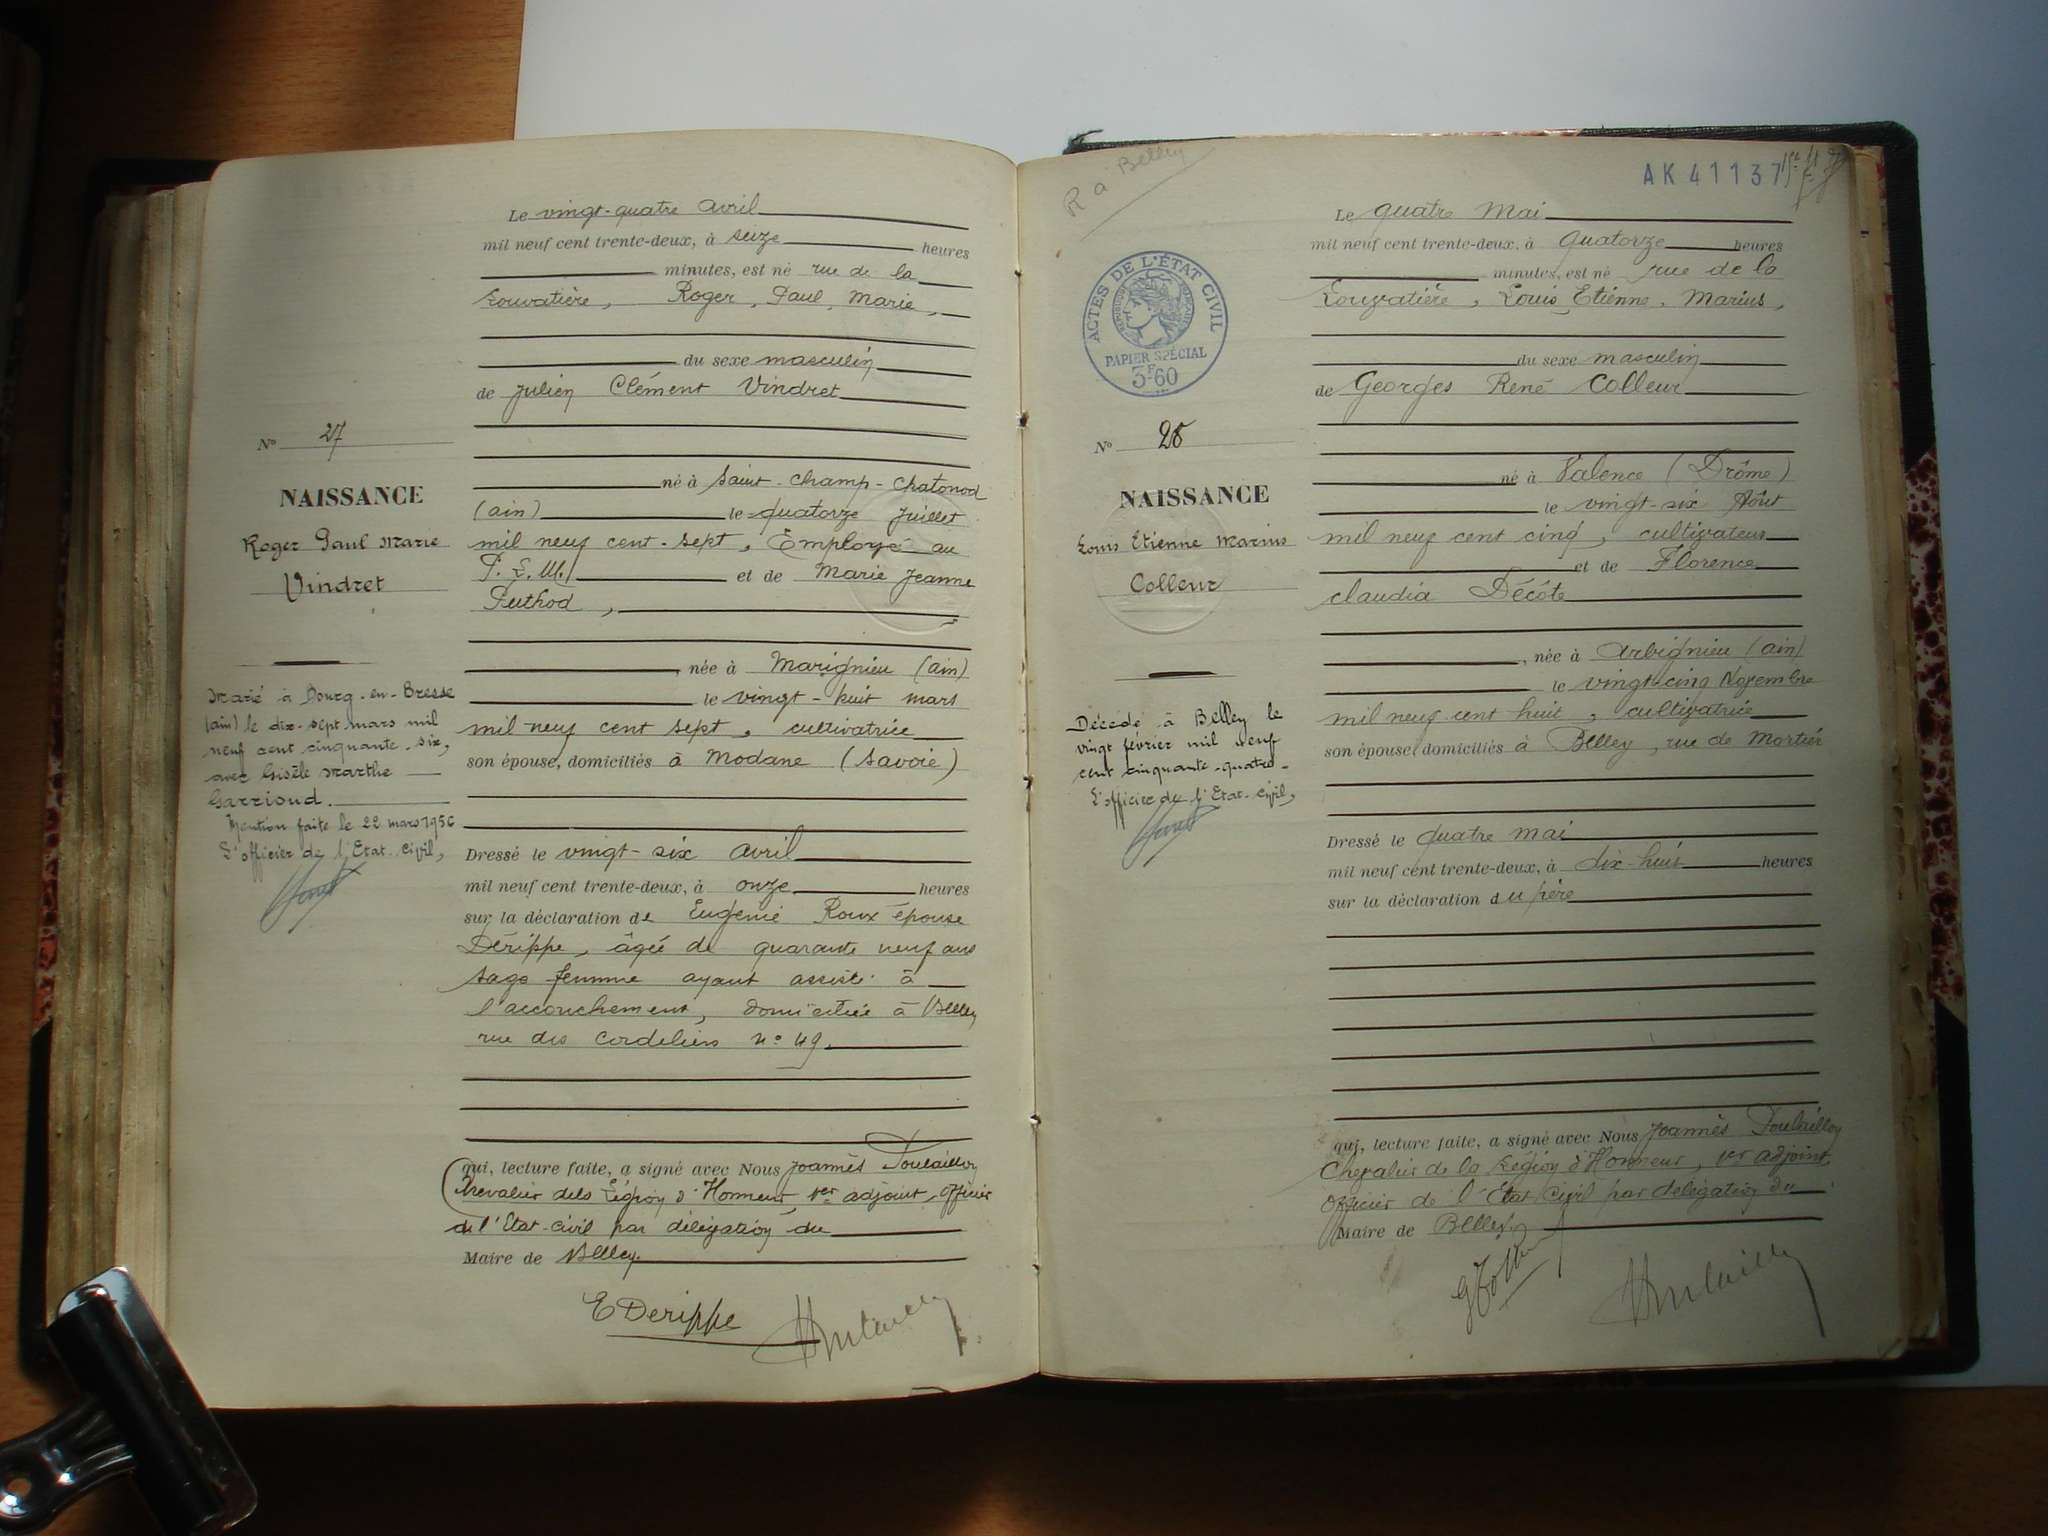 Le vingt-quatre avril
mil neuf cent trente-deux, à seize heures
minutes, est né rue de la
Louvatière, Roger, Paul, Marie,
du sexe masculin
de Julien Clément Vindret
né à Saint-Champ-Chatonod
(ain) le quatorze Juillet
mil neuf cent-sept, Employé au
P. L. M. et de Marie Jeanne
Puthod,
, née à Marignieu (ain)
le vingt-huit mars
mil neuf cent sept, cultivatrice
son épouse, domiciliés à Modane (Savoie)
Dressé le vingt-six avril
mil neuf cent trente-deux, à onze heures
sur la déclaration de Eugénie Roux épouse
Dérippe, âgée de quarante neuf ans
sage femme ayant assisté à
l'accouchement, domiciliée à Belley
rue des Cordeliers n° 49.
qui, lecture faite, a signé avec Nous Joannès
Chevalier de la Légion d'Honneur, 1er adjoint, officier
de l'Etat-civil par délégation du
Maire de Belley.
E Derippe
N° 27
NAISSANCE
Roger Paul Marie
Vindret
Marié à Bourg-en-Bresse
(ain) le dix-sept mars mil
neuf cent cinquante-six,
avec Gisèle Marthe
Garrioud.
Mention faite le 22 mars 1956
L'officier de l'Etat-civil,
R à Belley
AK 41137
ACTES DE L'ÉTAT CIVIL
PAPIER SPÉCIAL
3F60
Le quatre Mai
mil neuf cent trente-deux, à quatorze heures
minutes, est né rue de la
Louvatière, Louis, Etienne, Marius,
du sexe masculin
de Georges René Colleur
né à Valence (Drôme)
le vingt-six Août
mil neuf cent cinq, cultivateur
et de Florence
Claudia Décôte
, née à Arbignieu (ain)
le vingt-cinq Novembre
mil neuf cent huit, cultivatrice
son épouse, domiciliés à Belley, rue de Mortier
Dressé le quatre mai
mil neuf cent trente-deux, à dix-huit heures
sur la déclaration du père
qui, lecture faite, a signé avec Nous Joannès
Chevalier de la Légion d'Honneur, 1er adjoint,
Officier de l'Etat Civil par délégation du
Maire de Belley
N° 28
NAISSANCE
Louis Etienne Marius
Colleur
Décédé à Belley le
vingt février mil neuf
cent cinquante-quatre-
L'officier de l'Etat-civil,